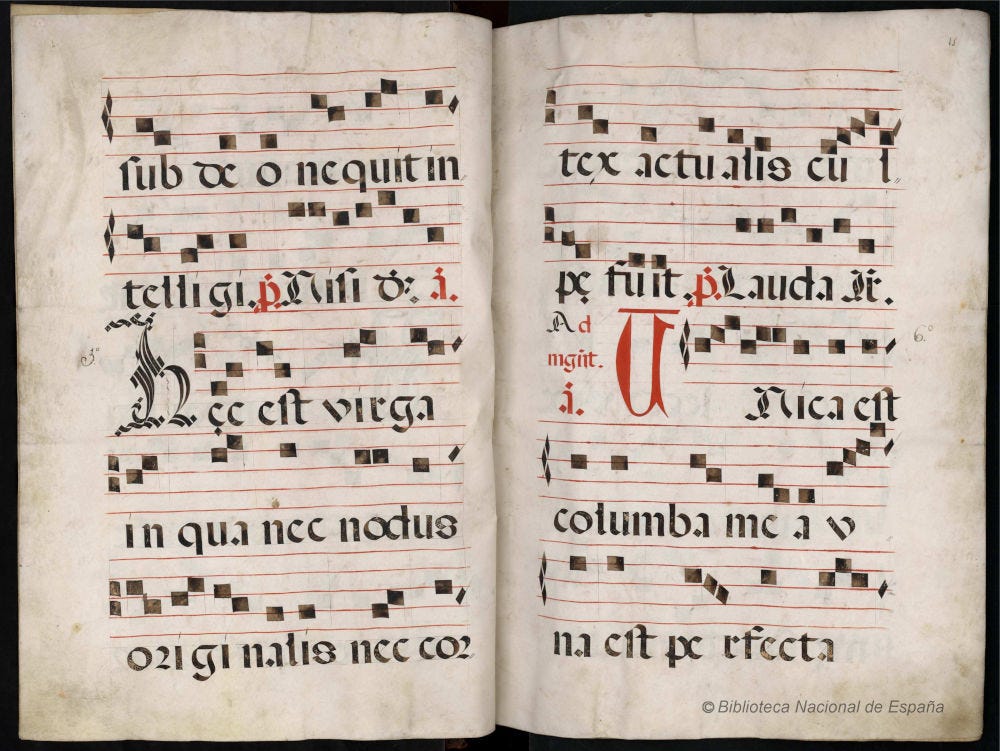 sub de o nequit in
telligi. p̃. Nisi dñs. a.
3º
Hęc est virga
in qua nec nodus
originalis nec cor
15
tex actualis cu l
pę fuit. p̃. Lauda Ir̃.
Ad
mgñt.
a.
6º
UNica est
columba me a v
na est pe rfecta
© Biblioteca Nacional de España